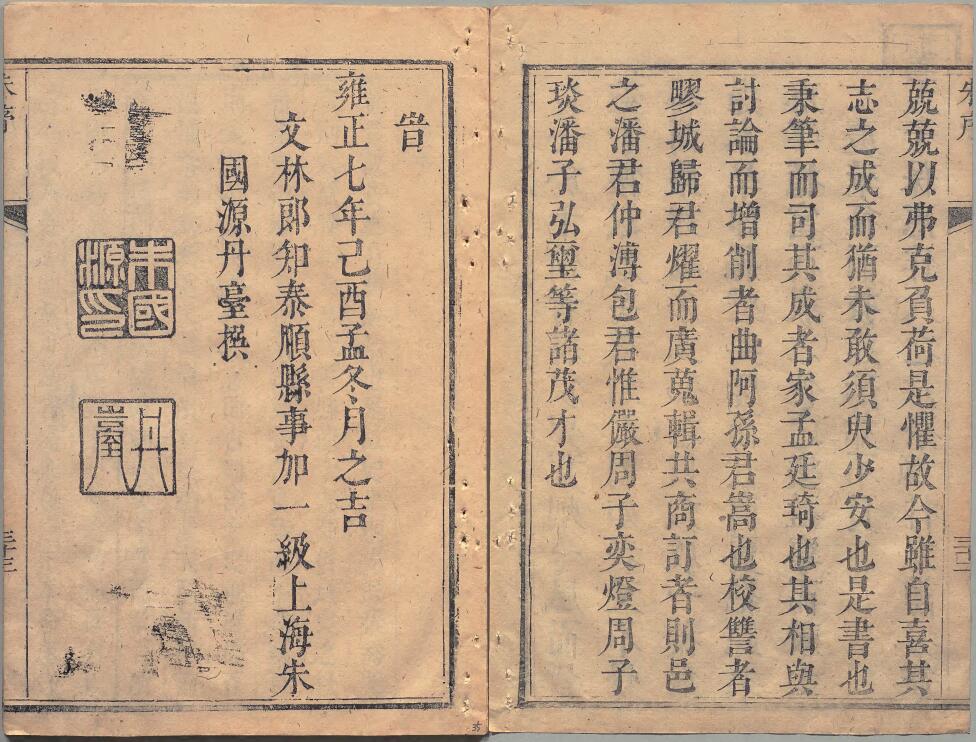 朱序
兢兢以弗克負荷是懼故今雖自喜其
志之成而猶未敢須臾少安也是書也
秉筆而司其成者家孟廷琦也其相與
討論而增削者曲阿孫君嵩也校讐者
膠城歸君燿而廣蒐輯共商訂者則邑
之潘君仲溥包君惟儼周子奕燈周子
琰潘子弘璽等諸茂才也
三十二
旹
雍正七年己酉孟冬月之吉
文林郎知泰順縣事加一級上海朱
國源丹臺撰
朱國源印
丹臺
朱序
三十三